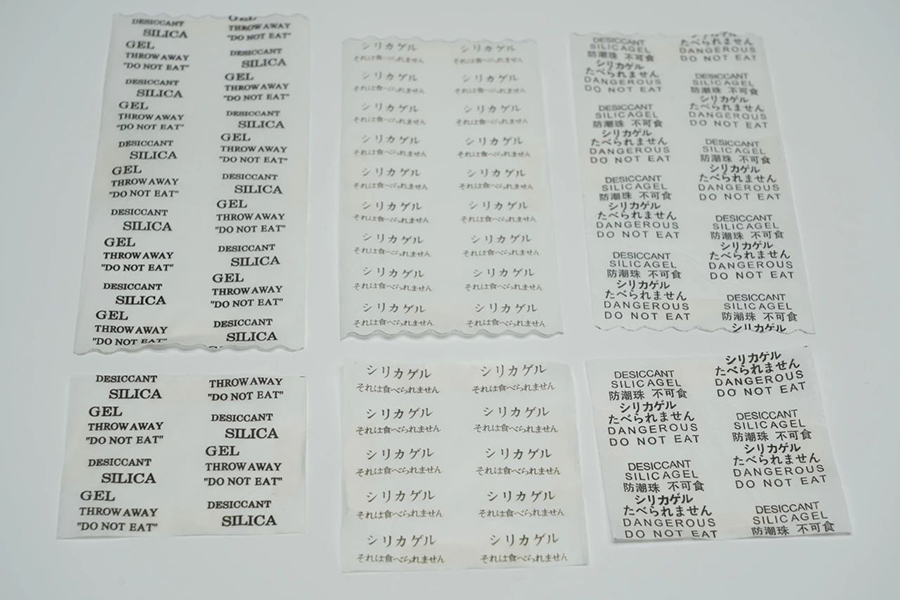 DESICCANT
SILICA
GEL
THROW AWAY
"DO NOT EAT"
DESICCANT
SILICA
GEL
THROW AWAY
"DO NOT EAT"
DESICCANT
SILICA
GEL
THROW AWAY
"DO NOT EAT"
DESICCANT
SILICA
GEL
THROW AWAY
"DO NOT EAT"
DESICCANT
SILICA
GEL
THROW AWAY
"DO NOT EAT"
GEL
THROW AWAY
"DO NOT EAT"
DESICCANT
SILICA
GEL
THROW AWAY
"DO NOT EAT"
DESICCANT
SILICA
GEL
THROW AWAY
"DO NOT EAT"
DESICCANT
SILICA
GEL
THROW AWAY
"DO NOT EAT"
DESICCANT
SILICA
GEL
THROW AWAY
"DO NOT EAT"
DESICCANT
SILICA
シリカゲル
それは食べられません
シリカゲル
それは食べられません
シリカゲル
それは食べられません
シリカゲル
それは食べられません
シリカゲル
それは食べられません
シリカゲル
それは食べられません
シリカゲル
それは食べられません
シリカゲル
それは食べられません
シリカゲル
それは食べられません
シリカゲル
それは食べられません
シリカゲル
それは食べられません
シリカゲル
それは食べられません
シリカゲル
それは食べられません
シリカゲル
それは食べられません
シリカゲル
それは食べられません
シリカゲル
それは食べられません
シリカゲル
それは食べられません
シリカゲル
それは食べられません
DESICCANT
SILICAGEL
防潮珠 不可食
シリカゲル
たべられません
DANGEROUS
DO NOT EAT
DESICCANT
SILICAGEL
防潮珠 不可食
シリカゲル
たべられません
DANGEROUS
DO NOT EAT
DESICCANT
SILICAGEL
防潮珠 不可食
シリカゲル
たべられません
DANGEROUS
DO NOT EAT
DESICCANT
SILICAGEL
防潮珠 不可食
シリカゲル
たべられません
DANGEROUS
DO NOT EAT
たべられません
DANGEROUS
DO NOT EAT
DESICCANT
SILICAGEL
防潮珠 不可食
シリカゲル
たべられません
DANGEROUS
DO NOT EAT
DESICCANT
SILICAGEL
防潮珠 不可食
シリカゲル
たべられません
DANGEROUS
DO NOT EAT
DESICCANT
SILICAGEL
防潮珠 不可食
シリカゲル
たべられません
DANGEROUS
DO NOT EAT
DESICCANT
SILICAGEL
防潮珠 不可食
シリカゲル
DESICCANT
SILICA
GEL
THROW AWAY
"DO NOT EAT"
DESICCANT
SILICA
GEL
THROW AWAY
"DO NOT EAT"
THROW AWAY
"DO NOT EAT"
DESICCANT
SILICA
GEL
THROW AWAY
"DO NOT EAT"
DESICCANT
SILICA
シリカゲル
それは食べられません
シリカゲル
それは食べられません
シリカゲル
それは食べられません
シリカゲル
それは食べられません
シリカゲル
それは食べられません
シリカゲル
それは食べられません
シリカゲル
それは食べられません
シリカゲル
それは食べられません
シリカゲル
それは食べられません
シリカゲル
それは食べられません
DESICCANT
SILICAGEL
防潮珠 不可食
シリカゲル
たべられません
DANGEROUS
DO NOT EAT
DESICCANT
SILICAGEL
防潮珠 不可食
シリカゲル
たべられません
DANGEROUS
DO NOT EAT
シリカゲル
たべられません
DANGEROUS
DO NOT EAT
DESICCANT
SILICAGEL
防潮珠 不可食
シリカゲル
たべられません
DANGEROUS
DO NOT EAT
DESICCANT
SILICAGEL
防潮珠 不可食